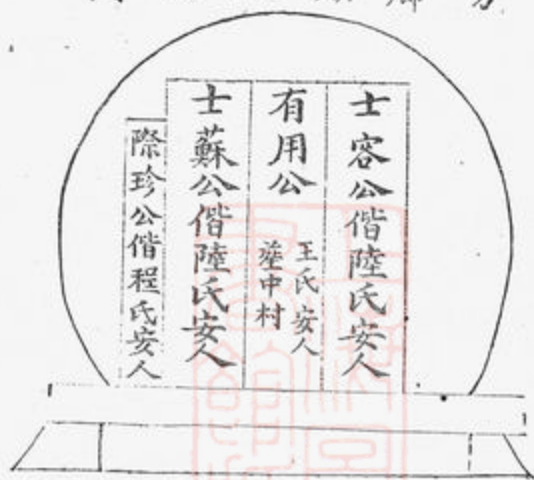 士容公偕陸氏安人
有用公
王氏安人
塟中村
士蘇公偕陸氏安人
際珍公偕程氏安人